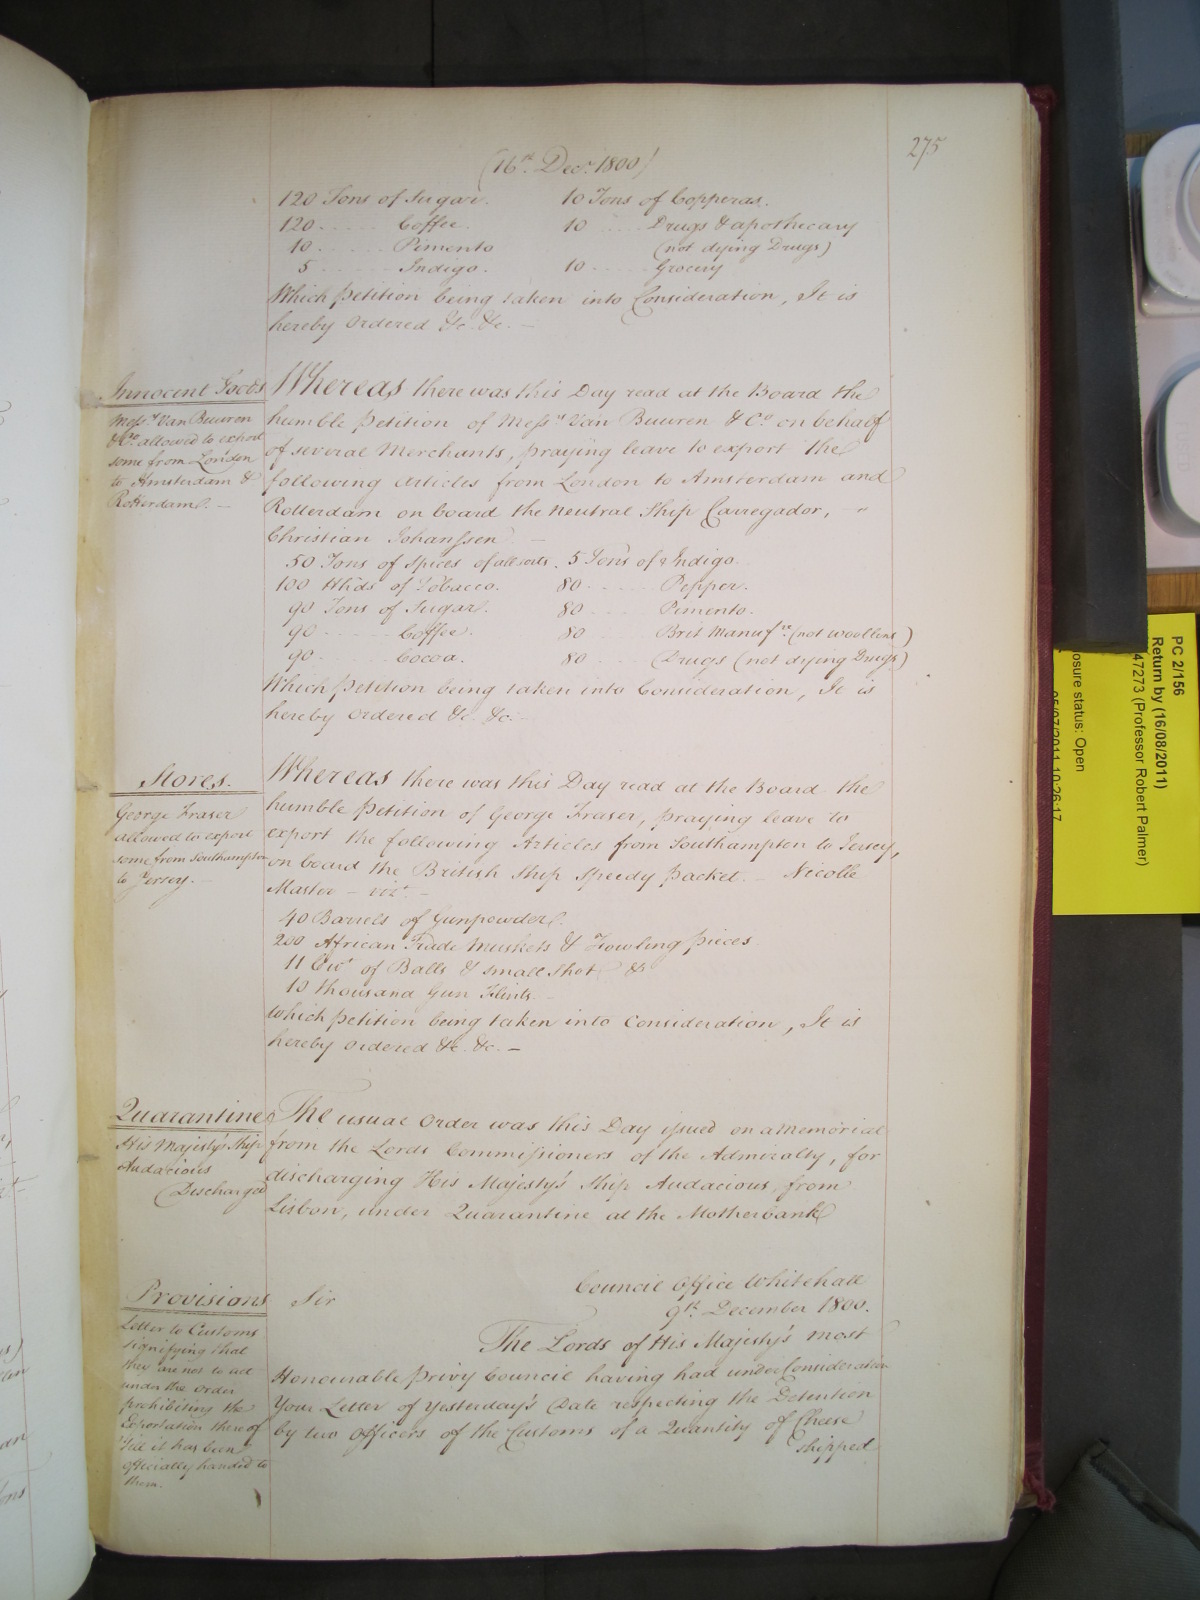 275
(16th. Decr. 1800)
120 Tons of Sugar. 10 Tons of Copperas.
120 ..... Coffee. 10 ..... Drugs & apothecary
10 ..... Pimento (not dying Drugs)
5 ..... Indigo. 10 ..... Grocery
Which Petition being taken into Consideration, It is
hereby ordered &c. &c. —
Innocent Goods
Messrs. Van Buuren
& Co. allowed to export
some from London
to Amsterdam &
Rotterdam. —
Whereas there was this Day read at the Board the
humble Petition of Messrs. Van Buuren & Co. on behalf
of several Merchants, praying leave to export the
following articles from London to Amsterdam and
Rotterdam on board the Neutral Ship Carregador, "
Christian Johanssen —
50 Tons of Spices of all sorts. 5 Tons of Indigo.
100 Hhds of Tobacco. 80 ..... Pepper.
90 Tons of Sugar. 80 ..... Pimento.
90 ..... Coffee. 80 ..... Brit Manufre. (not woollens)
90 ..... Cocoa. 80 ..... Drugs (not dying Drugs)
Which Petition being taken into Consideration, It is
hereby ordered &c. &c. —
Stores.
George Fraser
allowed to export
some from Southampton
to Jersey. —
Whereas there was this Day read at the Board the
humble Petition of George Fraser, praying leave to
export the following Articles from Southampton to Jersey,
on board the British Ship Speedy Packet — Nicolle
Master — vizt. —
40 Barrels of Gunpowder.
200 African Trade Muskets & Fowling pieces
11 Cwt. of Balls & small Shot &
10 thousand Gun Flints. —
Which Petition being taken into Consideration, It is
hereby ordered &c. &c. —
Quarantine
His Majesty's Ship
Audacious
Discharged
The usual Order was this Day issued on a Memorial
from the Lords Commissioners of the Admiralty, for
discharging His Majesty's Ship Audacious, from
Lisbon, under Quarantine at the Motherbank
Provisions
Letter to Customs
signifying that
they are not to act
under the Order
prohibiting the
Exportation thereof
till it has been
officially handed to
them.
Council Office Whitehall
9th. December 1800.
Sir
The Lords of His Majesty's most
Honourable Privy Council having had under Consideration
Your Letter of Yesterday's Date respecting the Detention
by two Officers of the Customs of a Quantity of Cheese
shipped
PC 2/156
Return by (16/08/2011)
47273 (Professor Robert Palmer)
osure status: Open
05/07/2011 10:26:17